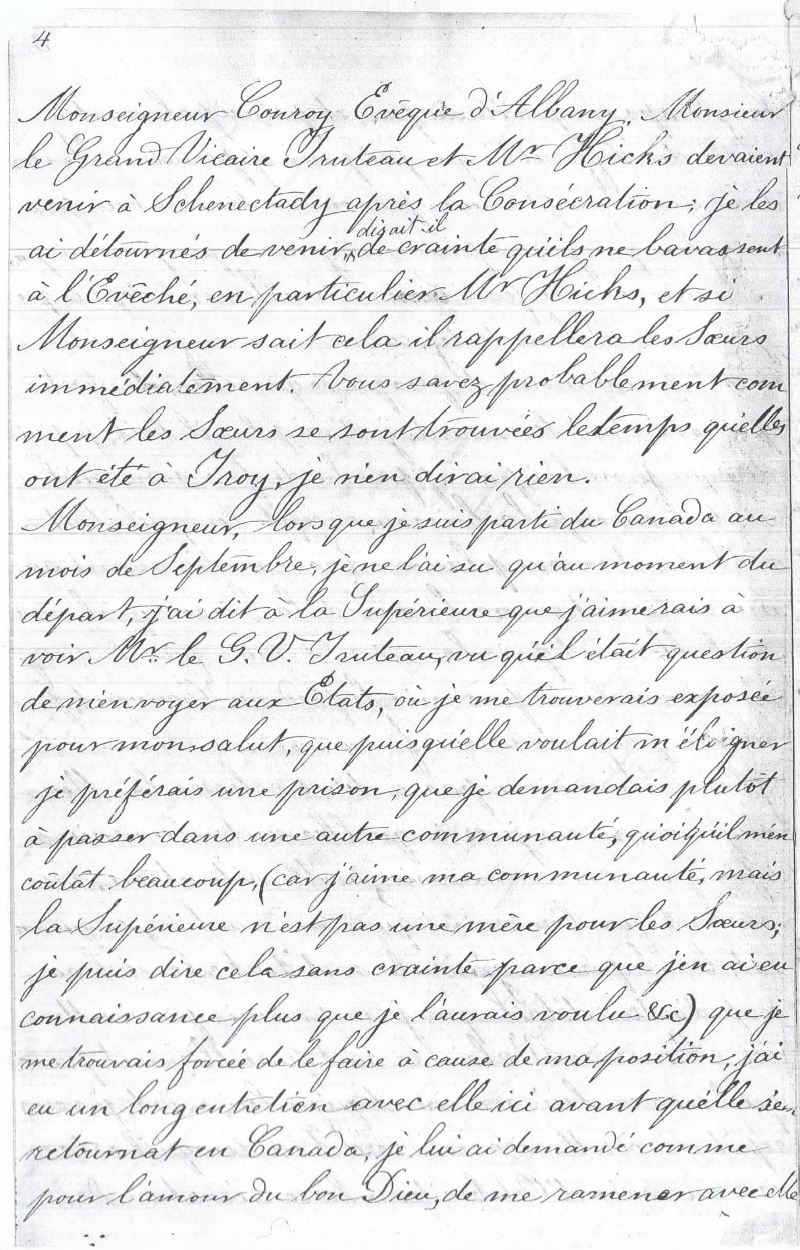 4
Monseigneur Conroy Evêque d'Albany. Monsieur
le Grand Vicaire Truteau et Mr Hicks devaient
venir à Schenectady après la Consécration; je les
disait-il
ai détournés de venir, de crainte qu'ils ne bavassent
à l'Evêché, en particulier Mr Hicks, et si
Monseigneur sait cela il rappellera les Sœurs
immédiatement. Vous savez probablement com
ment les Sœurs se sont trouvées le temps qu'elles
ont été à Troy, je n'en dirai rien.
Monseigneur, lorsque je suis parti du Canada au
mois de Septembre, je ne l'ai su qu'au moment du
départ, j'ai dit à la Supérieure que j'aimerais à
voir Mr. le G. V. Truteau, vu qu'il était question
de m'envoyer aux Etats, où je me trouverais exposée
pour mon salut, que puisqu'elle voulait m'éloigner
je préférais une prison, que je demandais plutôt
à passer dans une autre communauté, quoiqu'il m'en
coûtât beaucoup, (car j'aime ma communauté, mais
la Supérieure n'est pas une mère pour les Sœurs;
je puis dire cela sans crainte parce que j'en ai eu
connaissance plus que je l'aurais voulu &c) que je
me trouvais forcée de le faire à cause de ma position, j'ai
eu un long entretien avec elle ici avant qu'elle s'en
retournat en Canada, je lui ai demandé comme
pour l'amour du bon Dieu, de me ramener avec elle